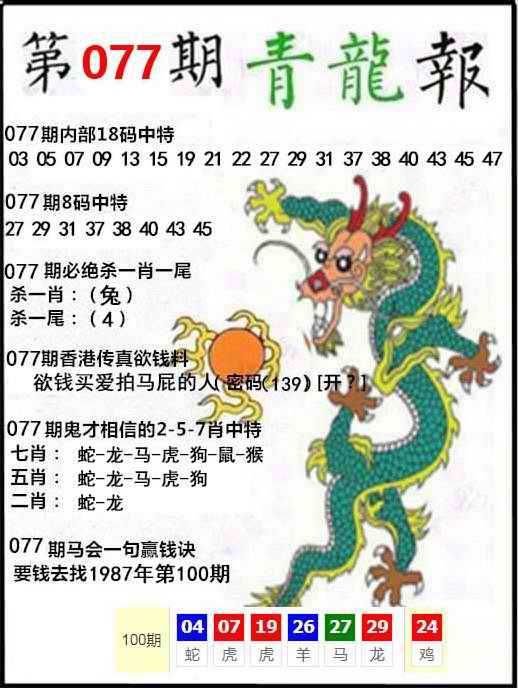 第077期 青龍報
077期内部18码中特
03 05 07 09 13 15 19 21 22 27 29 31 37 38 40 43 45 47
077期8码中特
27 29 31 37 38 40 43 45
077期必绝杀一肖一尾
杀一肖：(兔)
杀一尾：(4)
077期香港传真欲钱料
欲钱买爱拍马屁的人(密码(139)[开?]
077期鬼才相信的2-5-7肖中特
七肖： 蛇-龙-马-虎-狗-鼠-猴
五肖： 蛇-龙-马-虎-狗
二肖： 蛇-龙
077期马会一句赢钱诀
要钱去找1987年第100期
100期 04 07 19 26 27 29 24
蛇 虎 虎 羊 马 龙 鸡